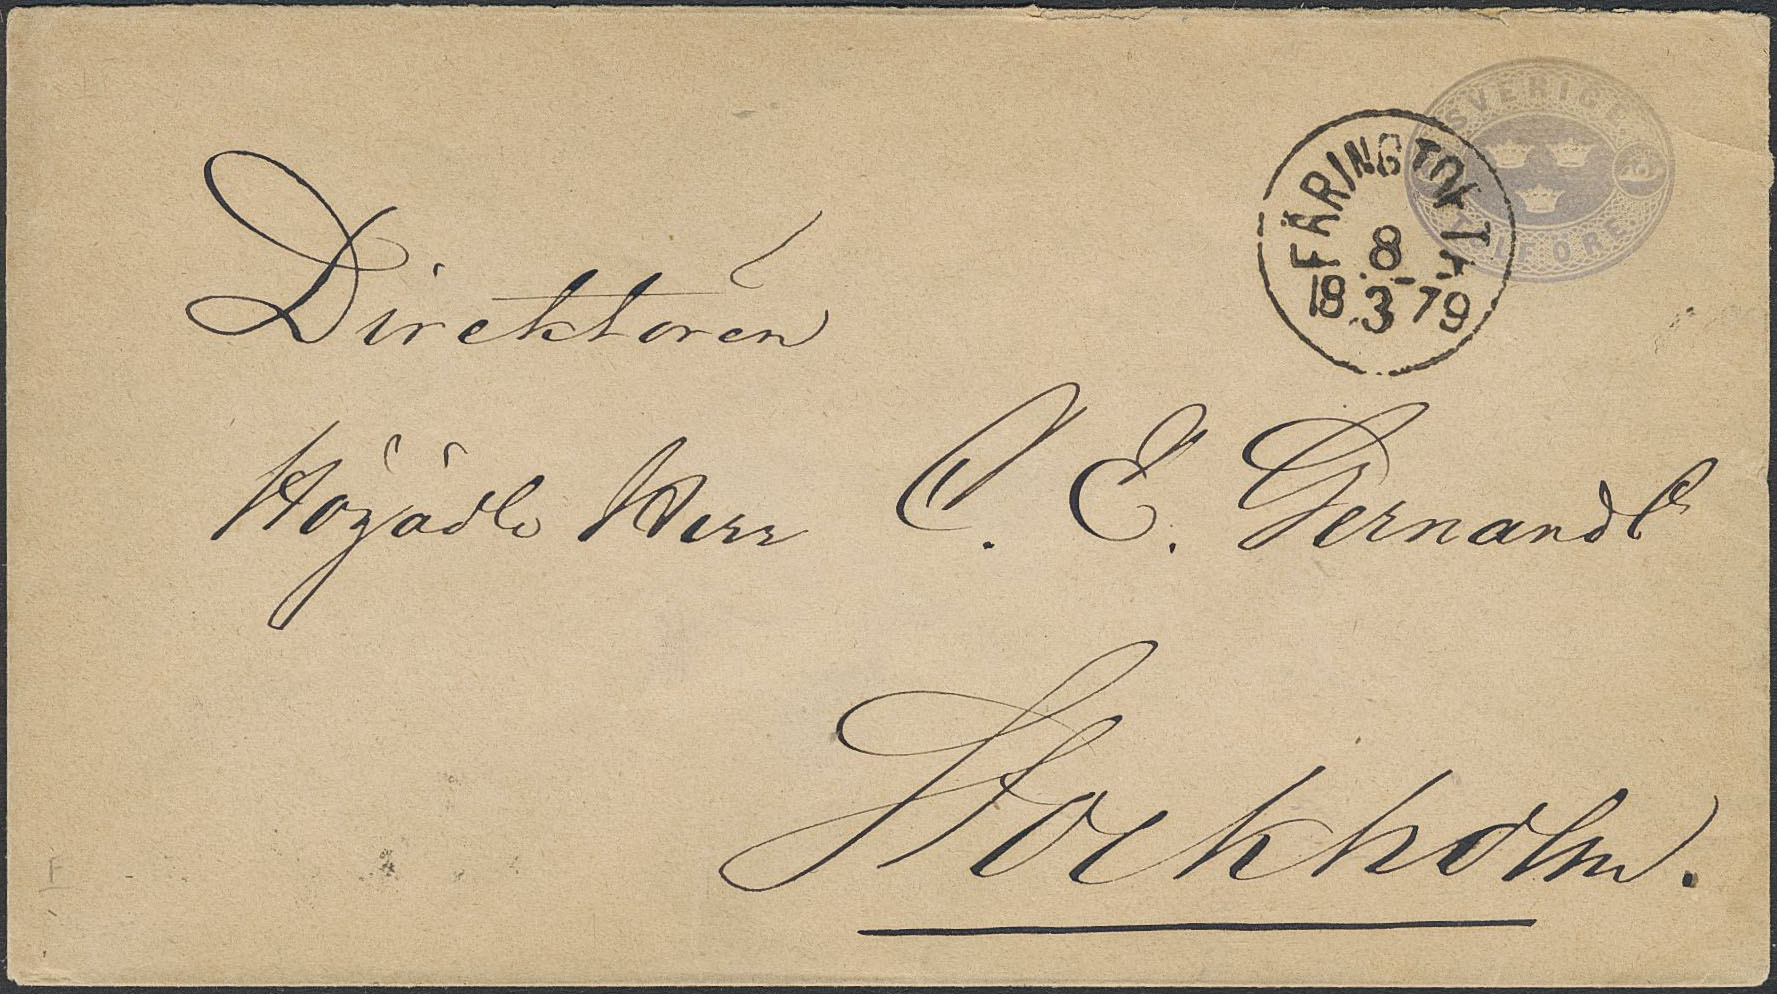 SVERIGE
TOLF ÖRE
FÄRINGTOFTA
8
18 3 79
Direktören
Högädle Herr C. E. Gernandt
Stockholm.
F